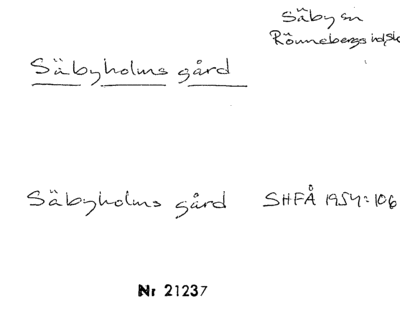 Säby sn
Rönnebergs hd, Sk
Säbyholms gård
Säbyholms gård SHFÅ 1954:106
Nr 21237